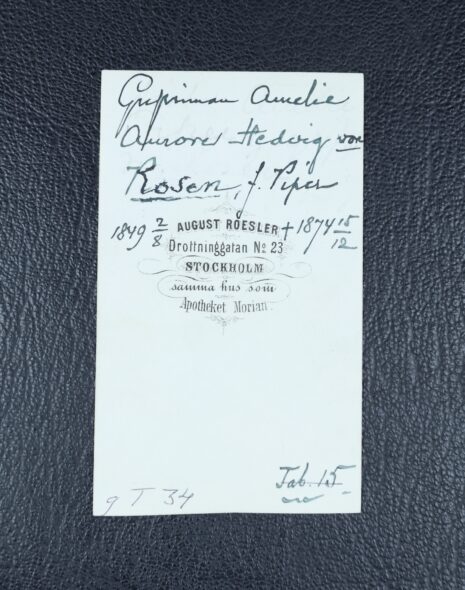 Grefvinnan Amelie
Aurora Hedvig von
Rosen, f. Piper
1849 2/8 + 1874 15/12
AUGUST ROESLER
Drottninggatan No 23
STOCKHOLM
samma hus som
Apotheket Morian
Tab. 15
9 T 34